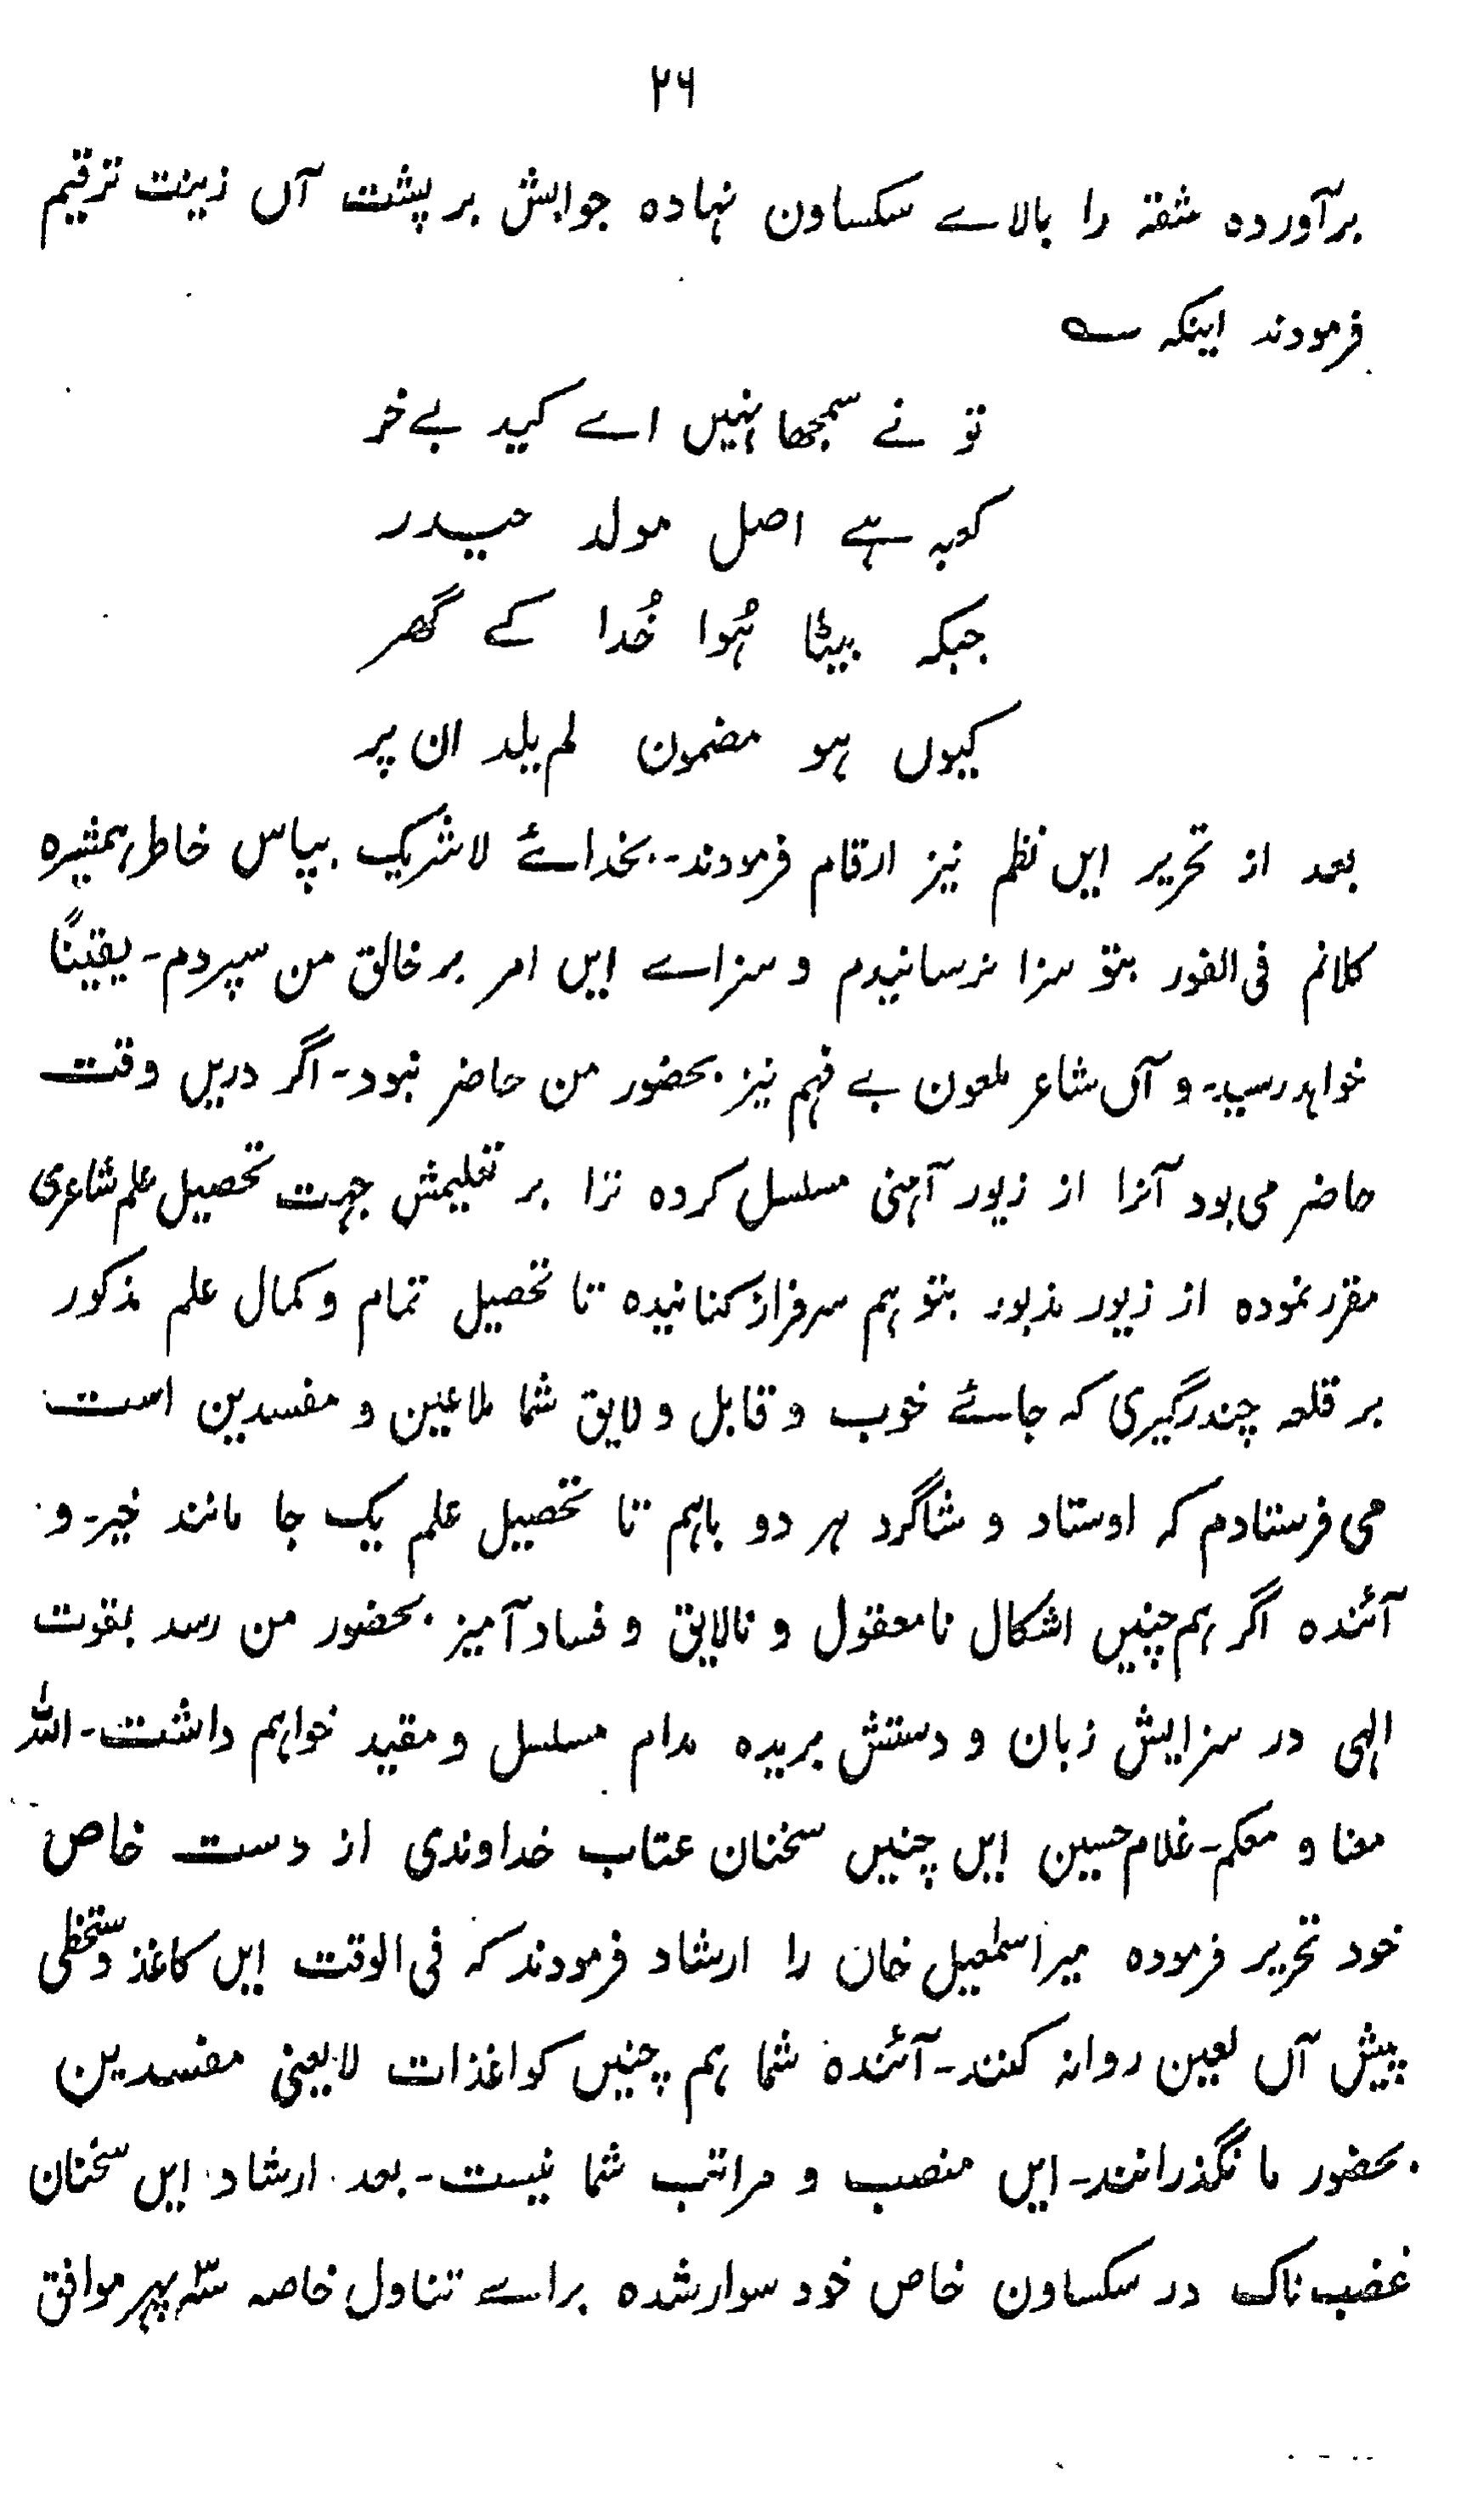 ۲۶
برآورده شقہ را بالاے سکساون نہادہ جوابش بر پشت آں زینت ترقیم
فرمودند اینکہ ؎
تو نے سمجھا نہیں اے کید بے خر
کعبہ ہے اصل مولد حیدر
جبکہ بیٹا ہُوا خُدا کے گھر
کیوں ہو مضمون لم یلد ان پر
بعد از تحریر ایں نظم نیز ارقام فرمودند۔ بخدائے لاشریک بپاس خاطر ہمشیرہ
کلانم فی الفور بتو سزا نرسانیدم و سزاے ایں امر بر خالق من سپردم۔ یقیناً
خواہد رسید۔ و آں شاعر ملعون بے فہم نیز بحضور من حاضر نبود۔ اگر دریں وقت
حاضر می بود آنرا از زیور آہنی مسلسل کردہ ترا بر تعلیمش جہت تحصیل علم شاعری
مقرر نمودہ از زیور مذبور بتو ہم سرفراز کنانیدہ تا تحصیل تمام و کمال علم مذکور
بر قلعہ چندرگیری کہ جائے خوب و قابل و لایق شما ملاعین و مفسدین است
می فرستادم کہ اوستاد و شاگرد ہر دو باہم تا تحصیل علم یک جا مانند خیر۔ و
آئندہ اگر ہم چنیں اشکال نامعقول و نالایق و فساد آمیز بحضور من رسد بقوت
الہی در سزایش زبان و دستش بریدہ مدام مسلسل و مقید خواہم داشت۔ اللہ
معنا و معکم۔ غلام حسین ایں چنیں سخنان عتاب خداوندی از دست خاص
خود تحریر فرمودہ میر اسمٰعیل خان را ارشاد فرمودند کہ فی الوقت ایں کاغذ دستخطی
پیش آں لعین روانہ کنند۔ آئندہ شما ہم چنیں کواغذات لایعنی مفسدین
بحضور ما نگذرانند۔ ایں منصب و مراتب شما نیست۔ بعد ارشاد ایں سخنان
غضب ناک در سکساون خاص خود سوار شدہ براے تناول خاصہ سہ پہر موافق